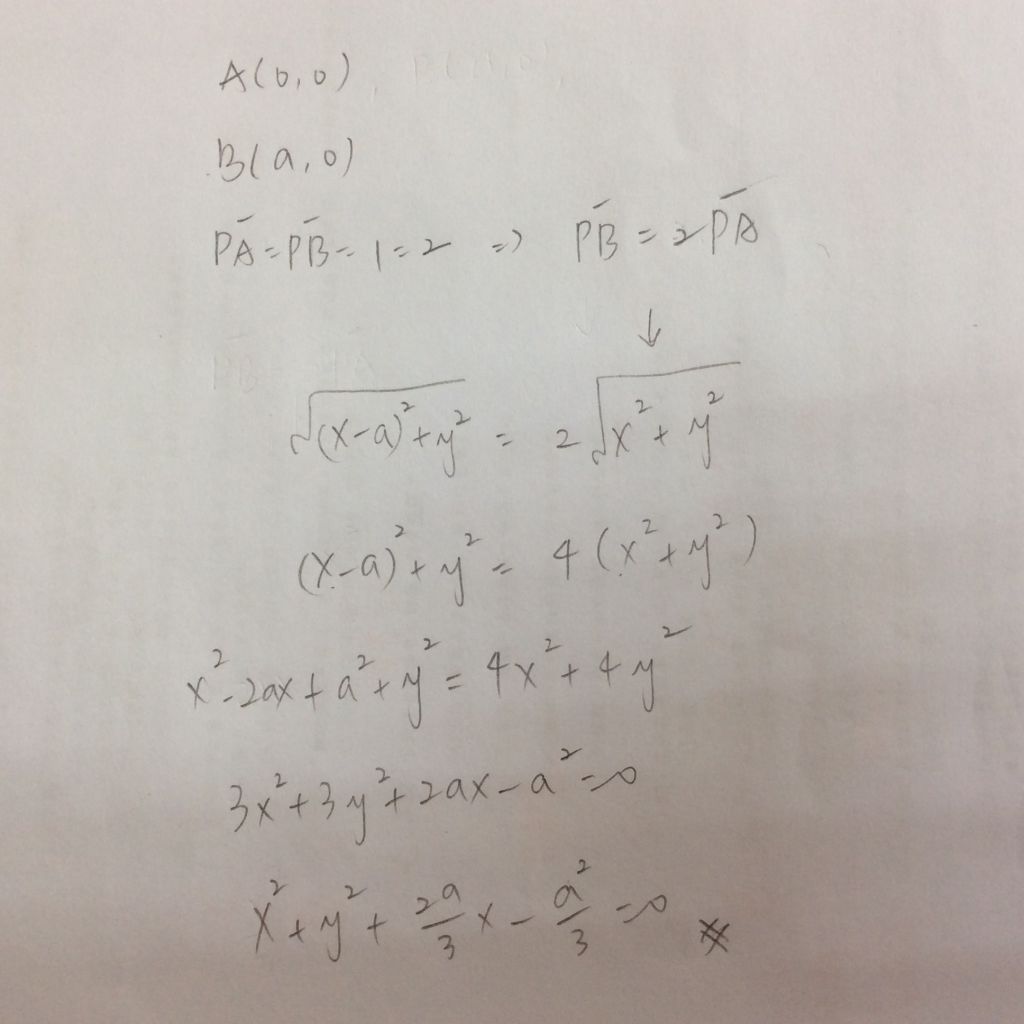 A(0,0)
B(a,0)
P̅A̅=P̅B̅=1=2 => P̅B̅=2P̅A̅
↓
√((x-a)²+y²) = 2√(x²+y²)
(x-a)²+y² = 4(x²+y²)
x²-2ax+a²+y² = 4x²+4y²
3x²+3y²+2ax-a²=0
x²+y²+2a/3 x - a²/3 =0 ※